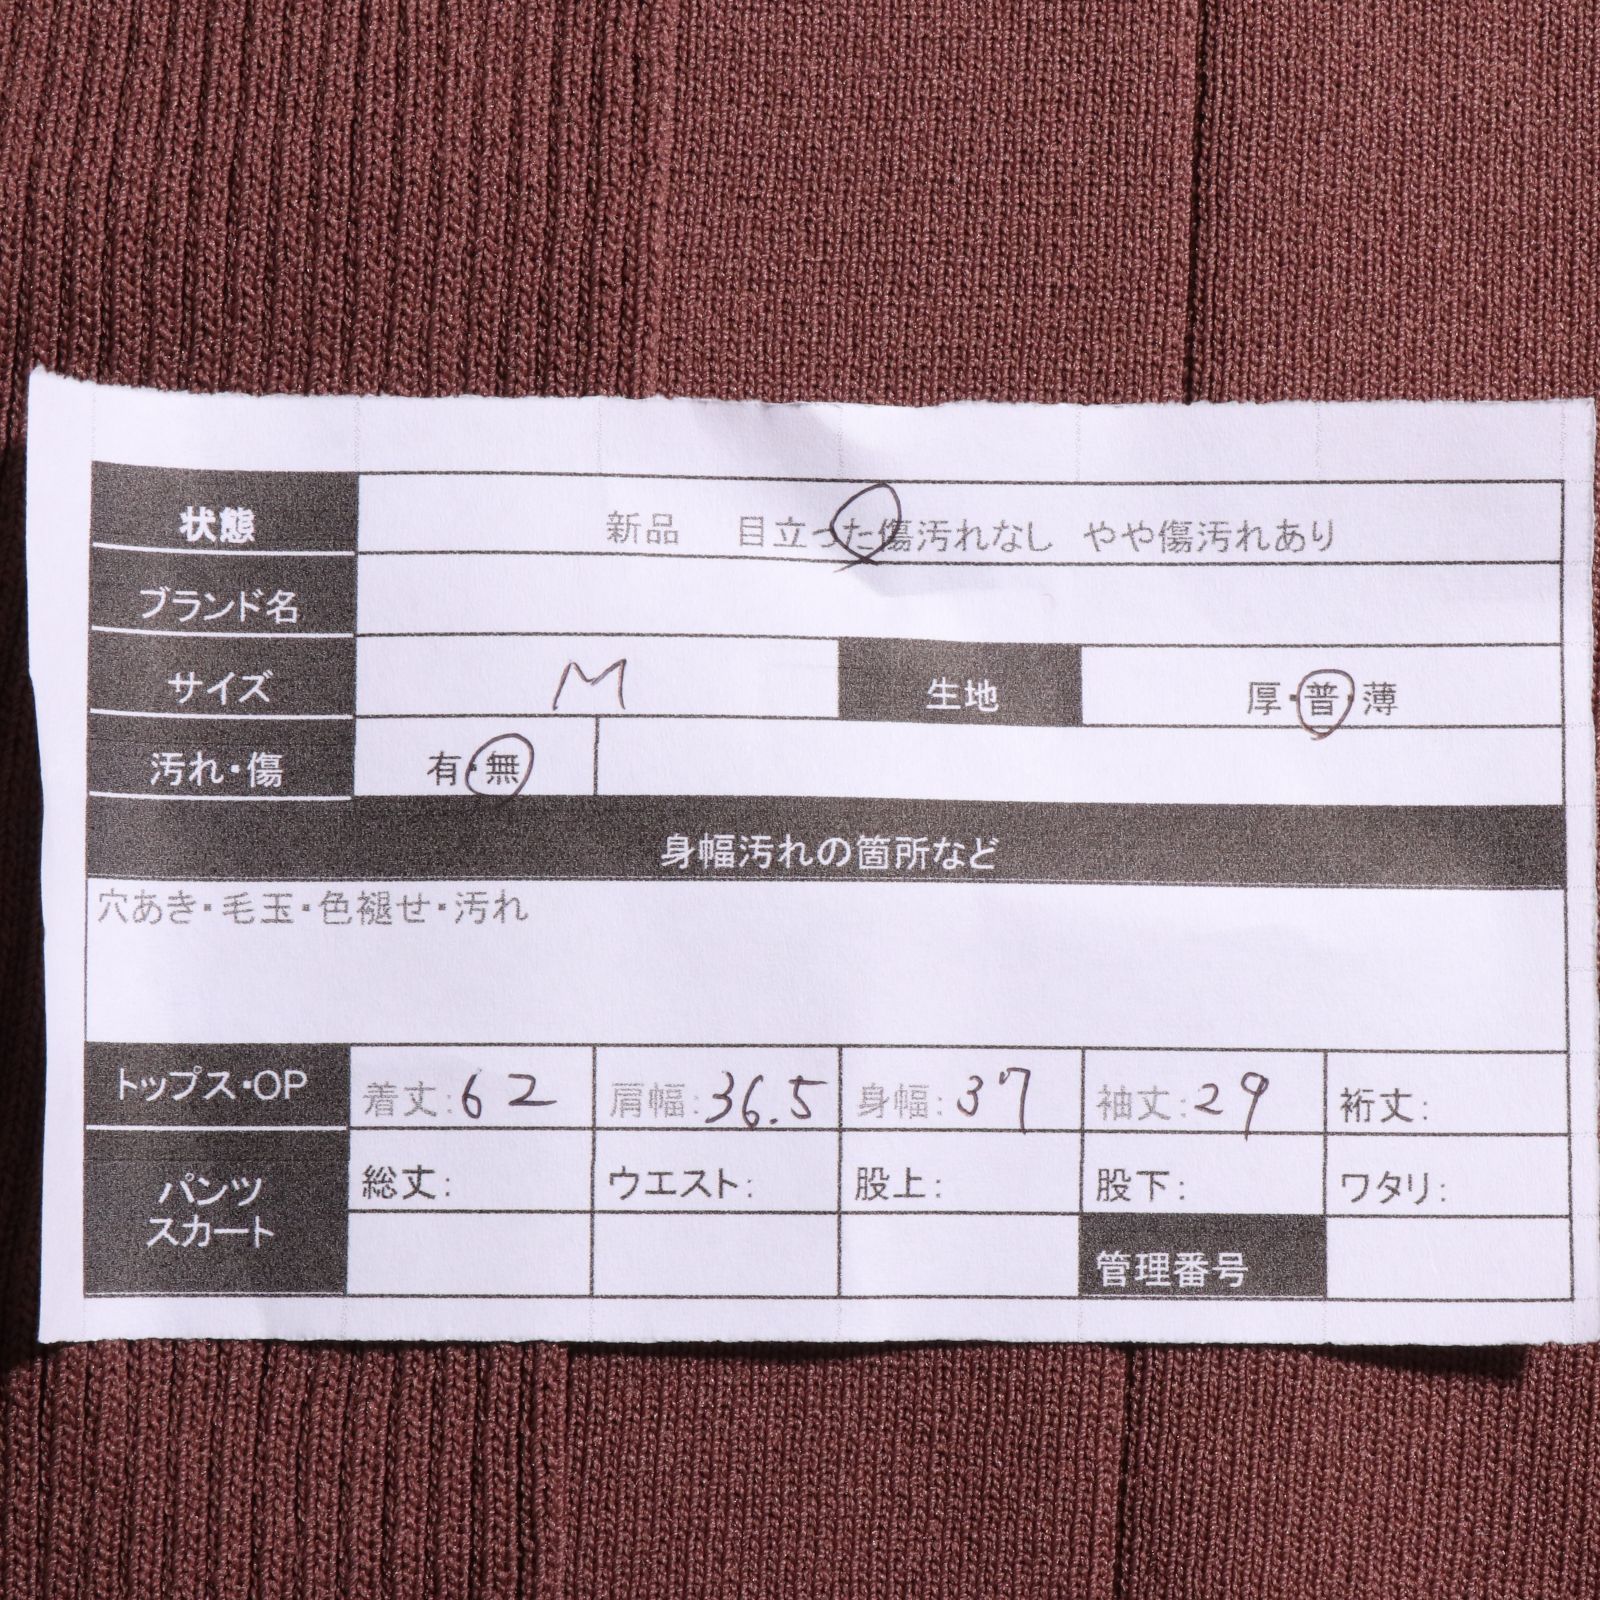 状態 新品 目立った傷汚れなし やや傷汚れあり
ブランド名
サイズ M 生地 厚・普・薄
汚れ・傷 有・無
身幅汚れの箇所など
穴あき・毛玉・色褪せ・汚れ
トップス・OP 着丈:62 肩幅:36.5 身幅:37 袖丈:29 裄丈:
パンツ
スカート
総丈: ウエスト: 股上: 股下: ワタリ:
管理番号